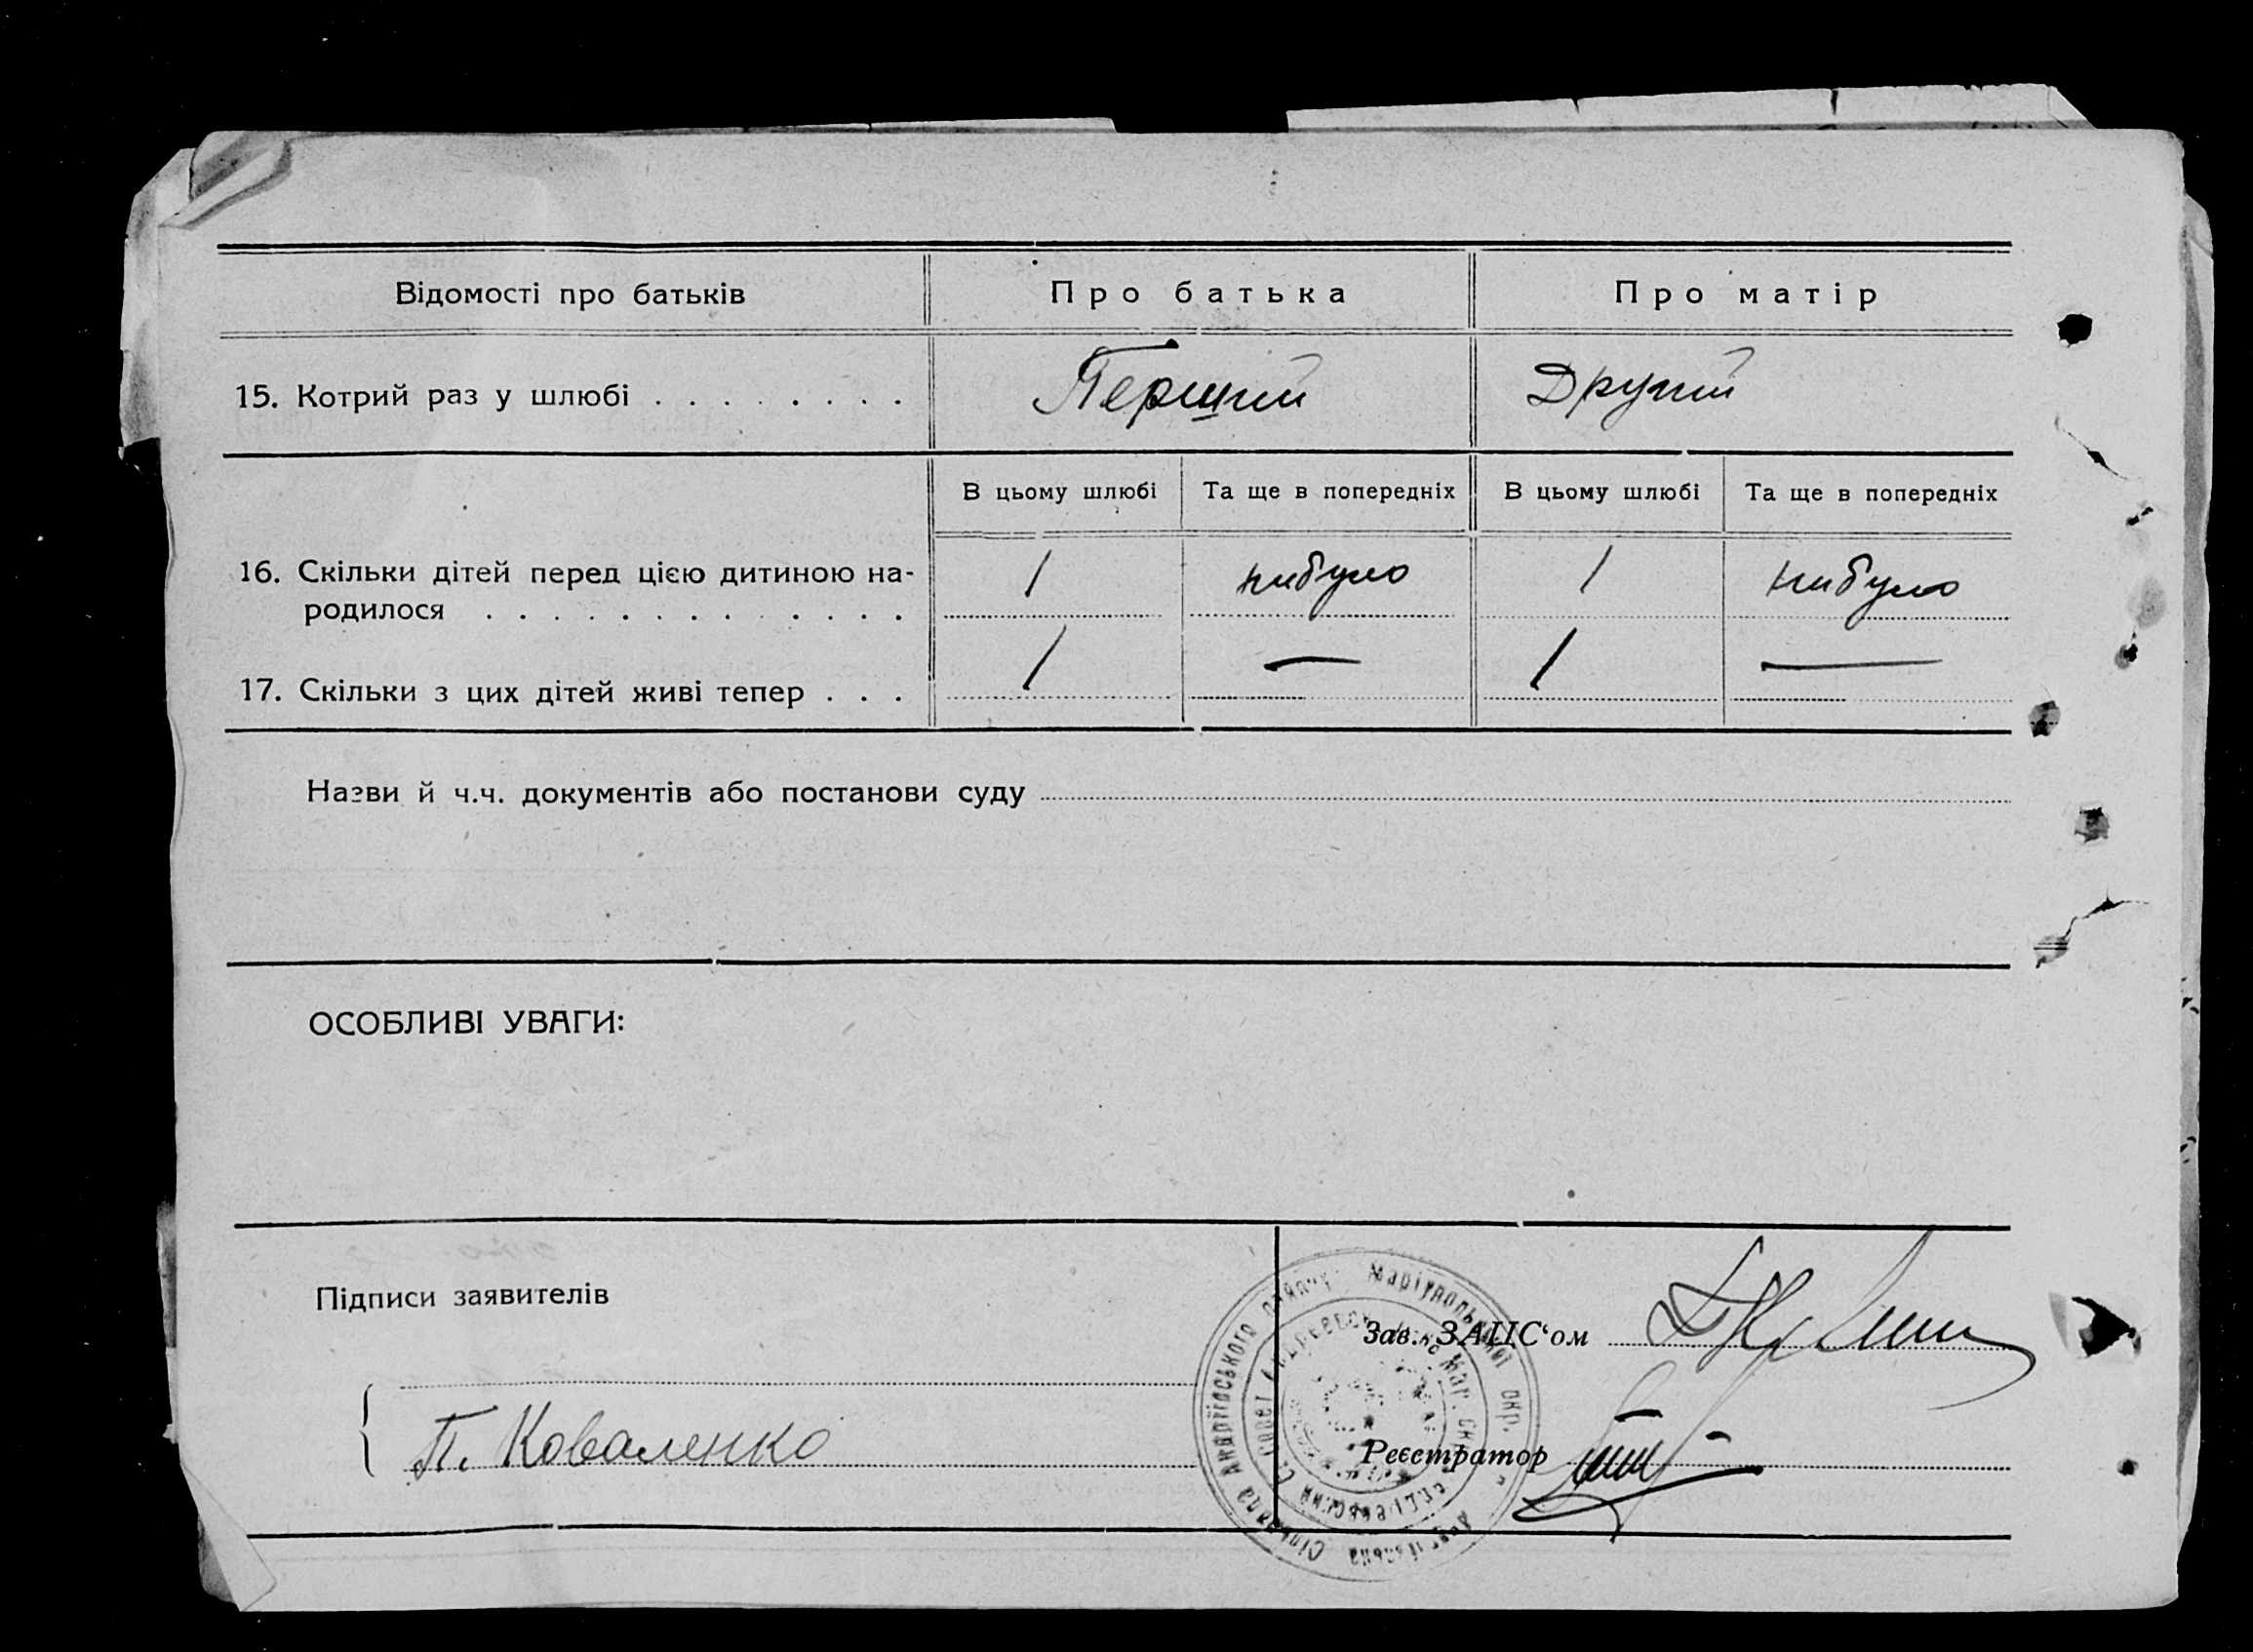 Відомості про батьків
Про батька
Про матір
15. Котрий раз у шлюбі . . . . . . . .
Перший
Другий
В цьому шлюбі
Та ще в попередніх
В цьому шлюбі
Та ще в попередніх
16. Скільки дітей перед цією дитиною на-
родилося . . . . . . . . . . . . .
1
нибуло
1
нибуло
17. Скільки з цих дітей живі тепер . . .
1
—
1
—
Назви й ч.ч. документів або постанови суду
ОСОБЛИВІ УВАГИ:
Підписи заявителів
П. Коваленко
Зав. ЗАЦС‘ом
Реєстратор
Маріупольської окр.